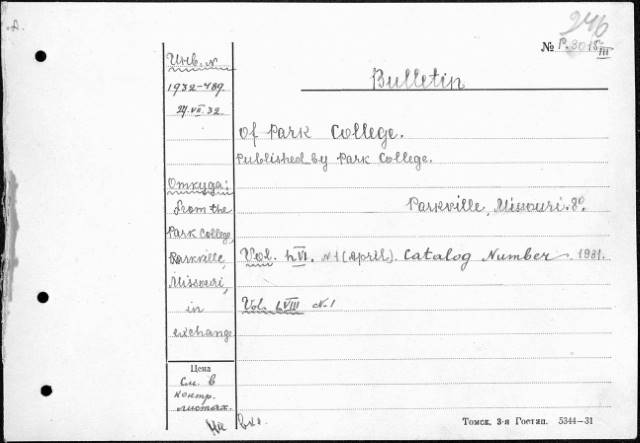 246
№ P. 3015 III
Инв. №
1932-489
27.VII.32
Bulletin
of Park College.
Published by Park College.
Откуда:
From the
Park College,
Parkville,
Missouri,
in
exchange
Parkville, Missouri. 8°.
Vol. LVI. N 1 (April). Catalog Number. 1931.
Vol. LVIII N. 1
Цена
См. в
контр.
листах.
На
Томск, 3-я Гостип. 5344—31